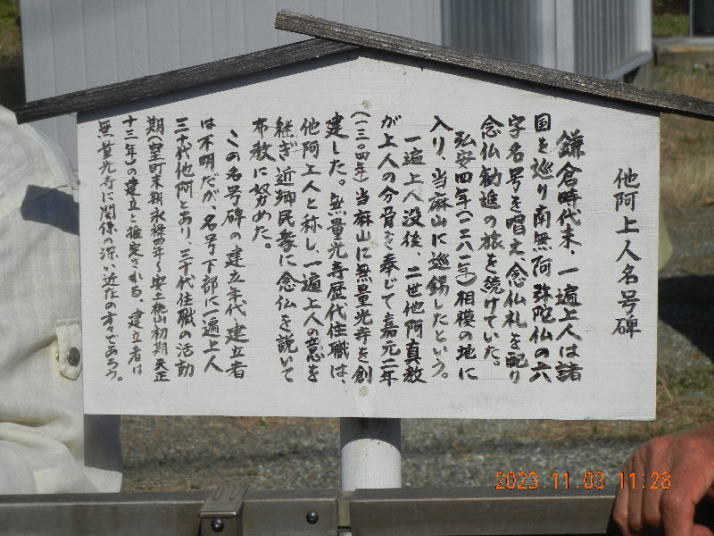 他阿上人名号碑
鎌倉時代末、一遍上人は諸
国を巡り南無阿弥陀仏の六
字名号を唱え念仏札を配り
念仏勧進の旅を続けていた。
弘安四年(一二八一年)相模の地に
入り、当麻山に巡錫したという。
一遍上人没後、二世他阿真教
が上人の分骨を奉じて嘉元二年
(一三〇四年)当麻山に無量光寺を創
建した。無量光寺歴代住職は、
他阿上人と称し、一遍上人の意を
継ぎ近郷民衆に念仏を説いて
布教に努めた。
この名号碑の建立年代、建立者
は不明だが、名号下部に一遍上人
三十代他阿とあり、三十代住職の活動
期(室町末期永禄四年～安土桃山初期天正
十三年)の建立と推定される。建立者は
無量光寺に関係の深い近在の方々であろう。
2023.11.03 11:28